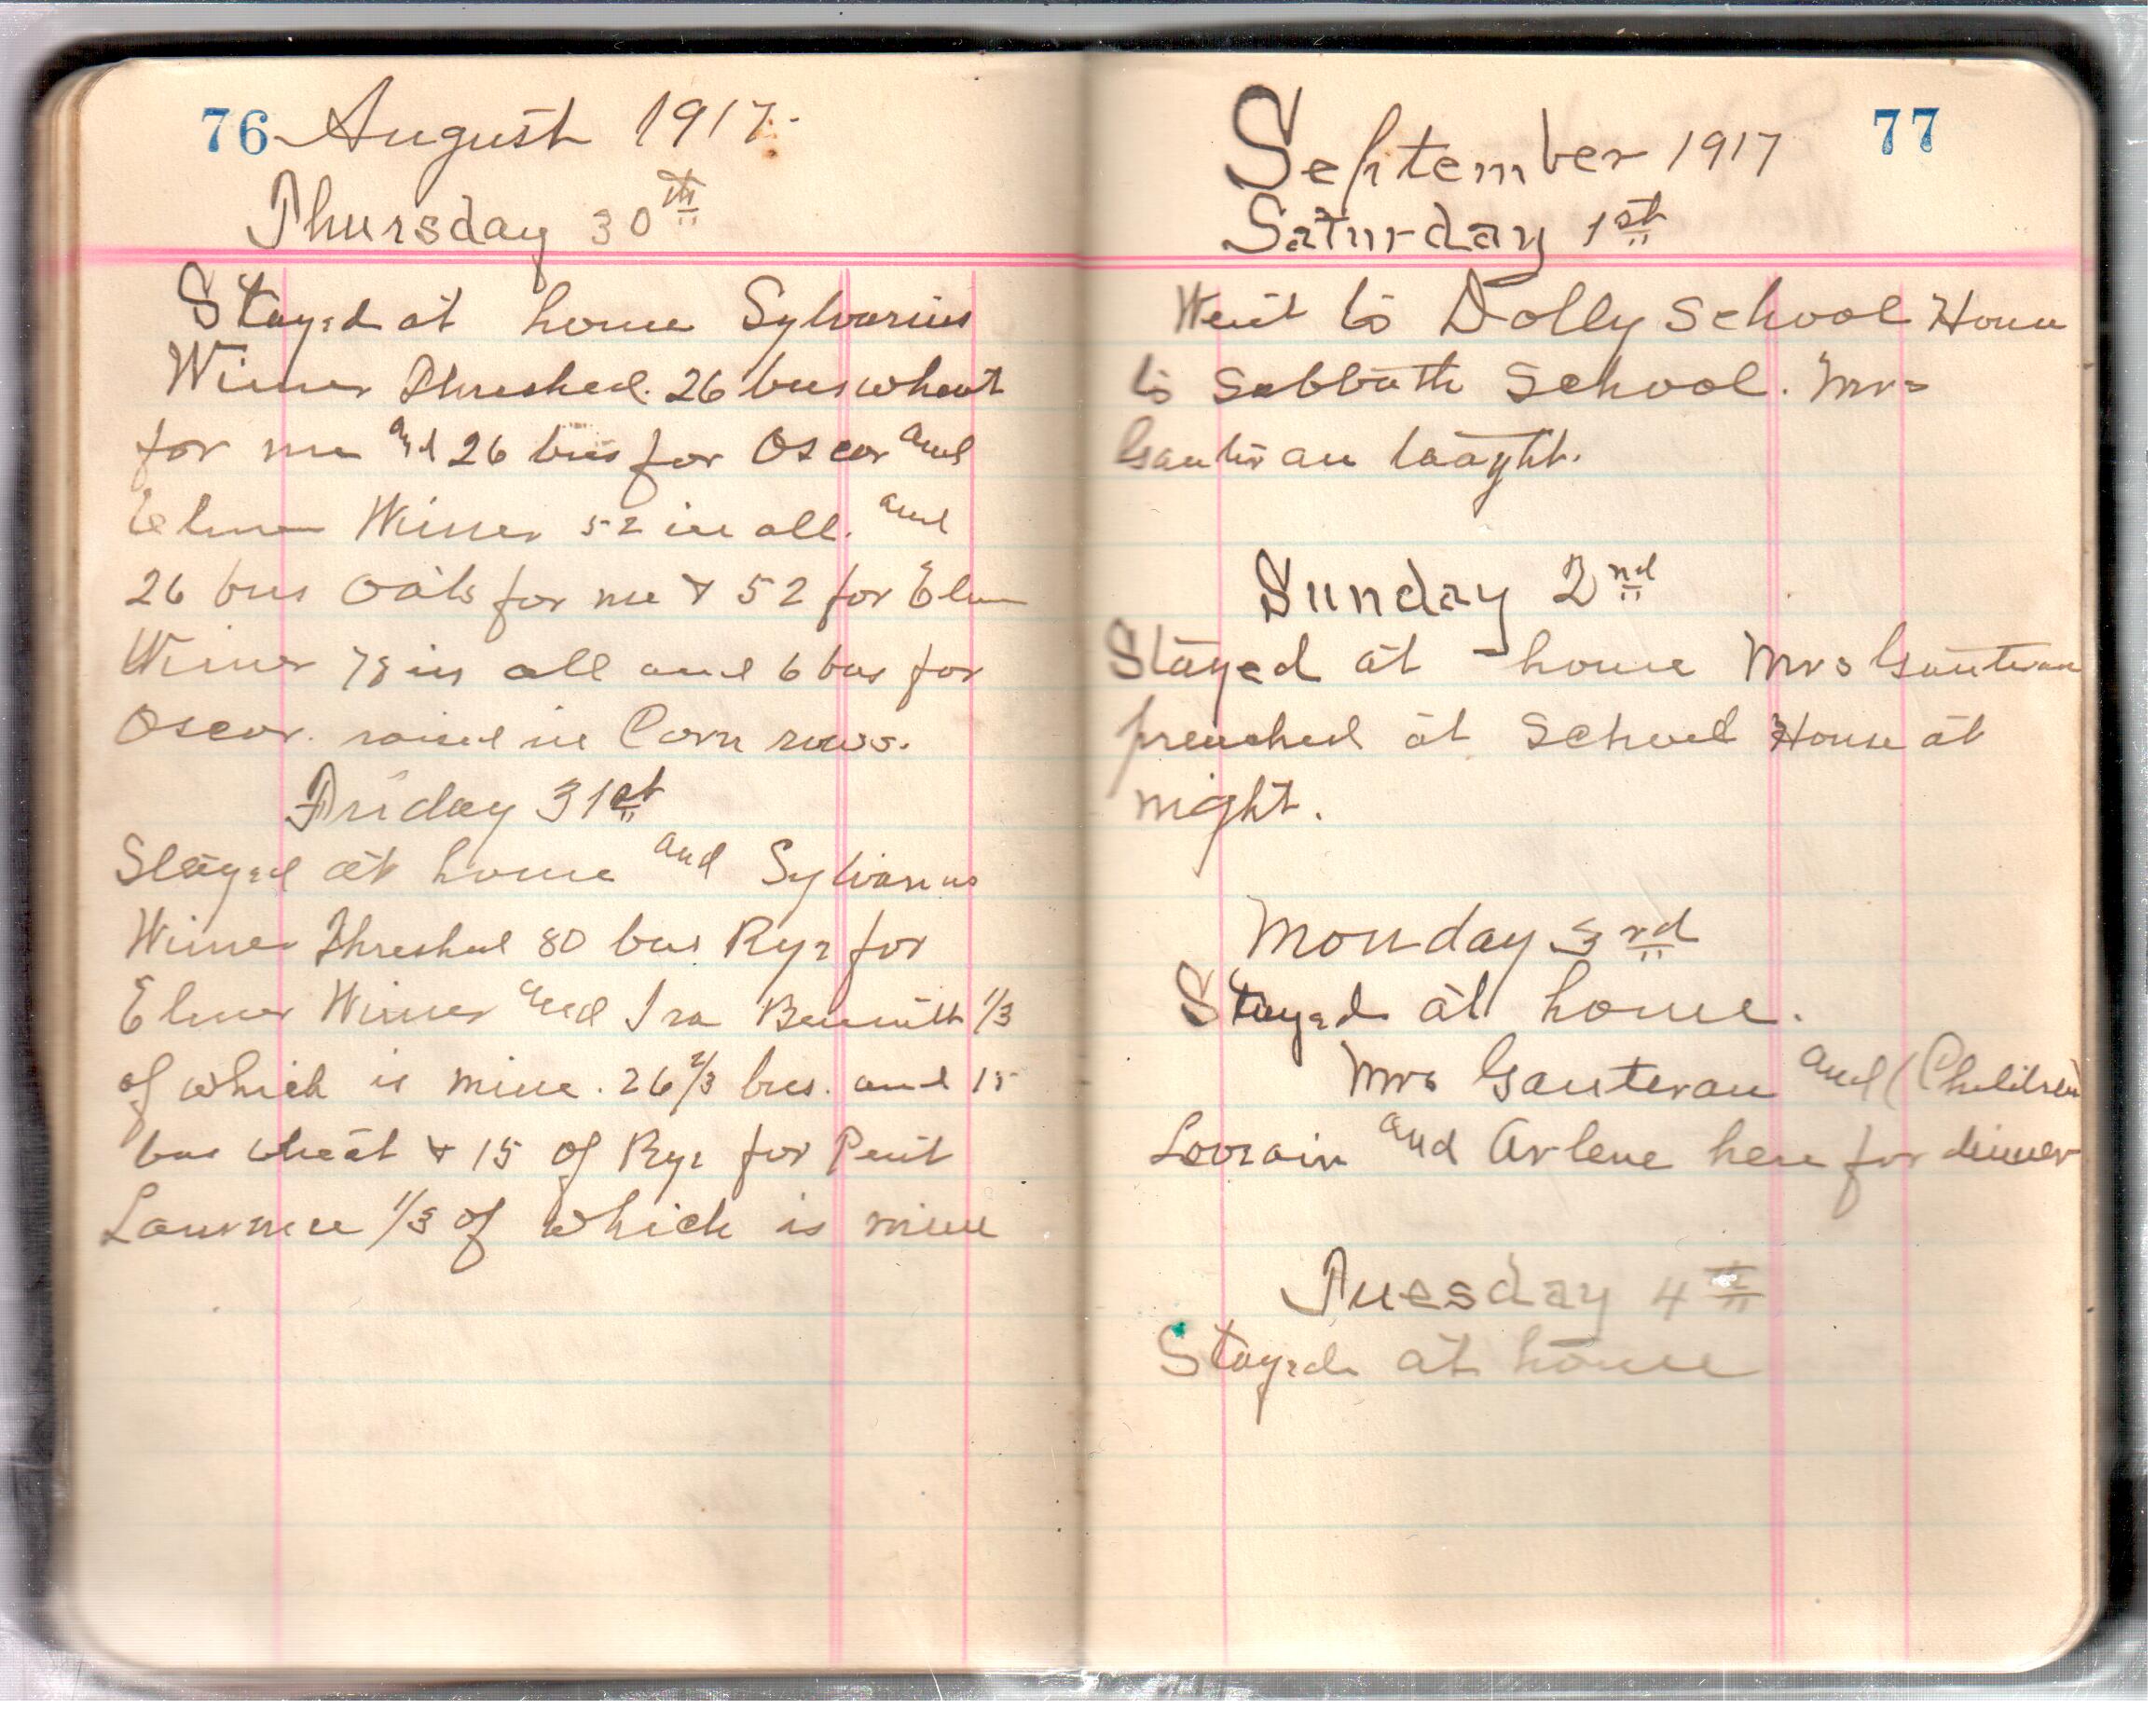 76 August 1917.
Thursday 30th
Stayed at home Sylvanius
Wisner Threshed. 26 bus wheat
for me and 26 bus for Oscar and
Elmer Wisner 52 in all. and
26 bus Oats for me & 52 for Elmer
Wisner 78 in all and 6 bus for
Oscar. raised in Corn rows.
Friday 31st
Stayed at home and Sylvanus
Wisner Threshed 80 bus Rye for
Elmer Wisner and Ira Bennitt 1/3
of which is mine. 26 2/3 bus. and 15
bus wheat & 15 of Rye for
Lawrence 1/3 of which is mine
77
September 1917
Saturday 1st
Went to Dolly School House
to Sabbath School. Mrs
Ganteran taught.
Sunday 2nd
Stayed at home Mrs Ganteran
preached at School House at
night.
Monday 3rd
Stayed at home.
Mrs Ganteran and Children
Lorain and Arlene here for dinner
Tuesday 4th
Stayed at home